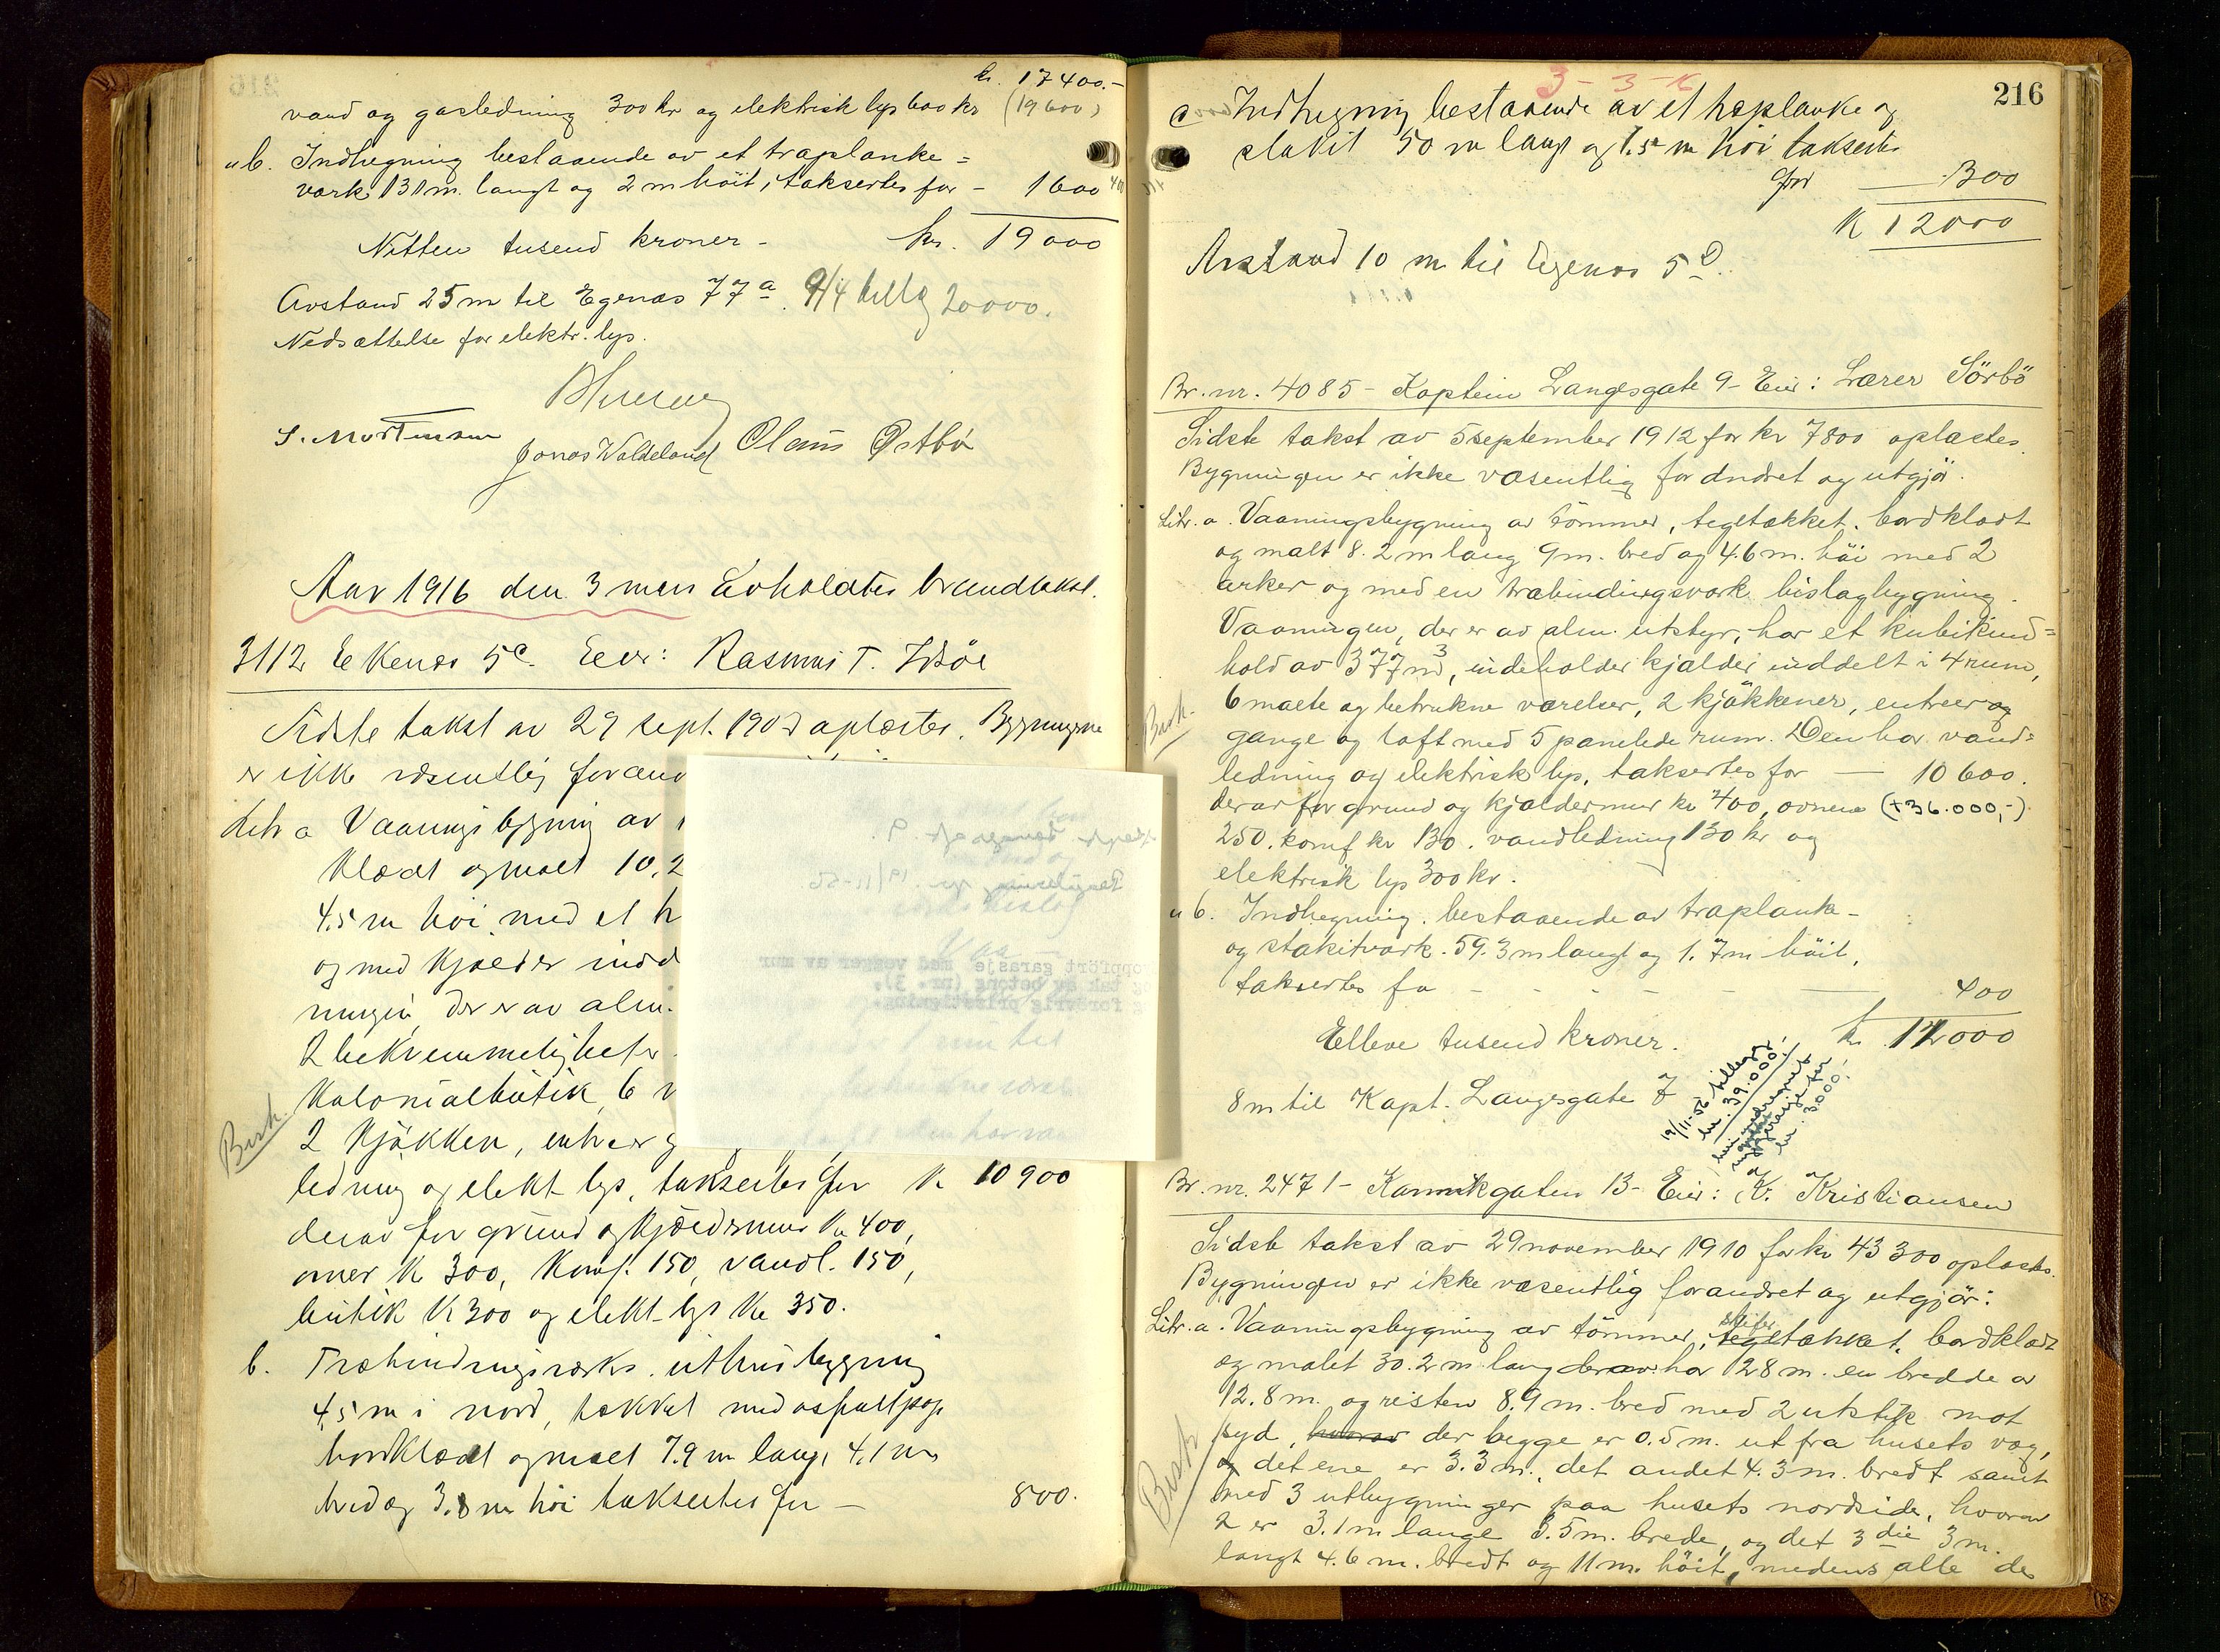 kr. 17400.-
vand og gasledning 300 kr og elektrisk lys 600 kr (19600)
" b. Indhegning bestaaende av et træplanke=
værk 131 m. langt og 2 m høit, taksertes for - 1600
Nitten tusend kroner - kr. 19000
Avstand 25 m til Egenæs 77a. 9/4 20000.
Nedsættelse for elektr. lys.
S. Mortensen
Jonas Waldeland Claus Østbö
Aar 1916 den 3 mars avholdtes brandtakst.
3112 Ekenæs 5c. Eier: Rasmus T.
Sidste takst av 29 sept. 190 oplæstes. Bygningene
er ikke væsentlig forand
Litr a Vaaningsbygning av
klædt og malt 10,2
4,5 m höi med et h
og med kjælder indd
ningen der er av alm.
2 bekvemmeligheter
Kolonialbutik, 6 v
2 kjøkken, entreer g
ledning og elekt lys, taksertes for kr 10900
derav for grund og kjældermur kr 400,
ovner kr 300, komf. 150, vandl. 150,
butik kr 300 og elekt. lys kr 350.
b. Træbindingsværks uthusbygning
4,5 m i nord, tækket med asfaltpap
bordklædt og malt 7.9 m lang, 4,1 m
bred og 3.8 m höi taksertes for - 800.
Birk.
oppført garasje med vegger av mur
og tak av betong (nr. 3),
forøvrig prisstigning.
216
3-3-16
c Indhegning bestaaende av et træplanke og
stakit 50 m langt og 1.5 m höi taksertes
for 300
kr 12000
Avstand 10 m til Egenæs 5
Br. nr. 4085 - Kaptein Langesgate 9 - Eier: Lærer Sörbö
Sidste takst av 5 september 1912 for kr 7800 oplæstes.
Bygningen er ikke væsentlig forandret og utgjör.
Litr. a. Vaaningsbygning av tömmer, tegltækket, bordklædt
og malt 8.2 m lang 9 m. bred og 4.6 m. höi med 2
arker og med en træbindingsværk bislagbygning.
Vaaningen, der er av alm. utstyr, har et kubikind=
hold av 377 m3, indeholder kjælder inddelt i 4 rum,
6 malte og betrukne værelser, 2 kjøkkener, entreer og
gange og loft med 5 panelede rum. Den har vand=
ledning og elektrisk lys, taksertes for - 10600.
derav for grund og kjældermur kr 400, ovnene (+36.000,-)
250. komf kr 130. vandledning 130 kr og
elektrisk lys 300 kr.
" b. Indhegning, bestaaende av træplanke-
og stakitværk. 59.3 m langt og 1.7 m höit,
taksertes fo - 400
Elleve tusend kroner. kr 11000
8 m til Kapt. Langesgate 7
19/11-56 tillegg
kr. 39.000,-
ny garasje for
kr. 3000.-
Br. nr. 2471 - Kannikgaten 13 - Eier: K. Kristiansen
Sidste takst av 29 november 1910 for kr 43300 oplæstes.
Bygningen er ikke væsentlig forandret og utgjör:
Litr. a. Vaaningsbygning av tömmer, skifer tegltækket, bordklædt
og malet 30.2 m lang derav har 12.8 m. en bredde av
12.8 m. og resten 8.9 m. bred med 2 utstik mot
syd, hvorav der begge er 0.5 m. ut fra husets væg,
og det ene er 3.3 m., det andet 4.3 m. bredt samt
med 3 utbygninger paa husets nordside, hvorav
2 er 3.1 m lange 3.5 m. brede, og det 3die 3 m.
langt 4.6 m. bredt og 11 m. höit, medens alle de
Birk.
Birk